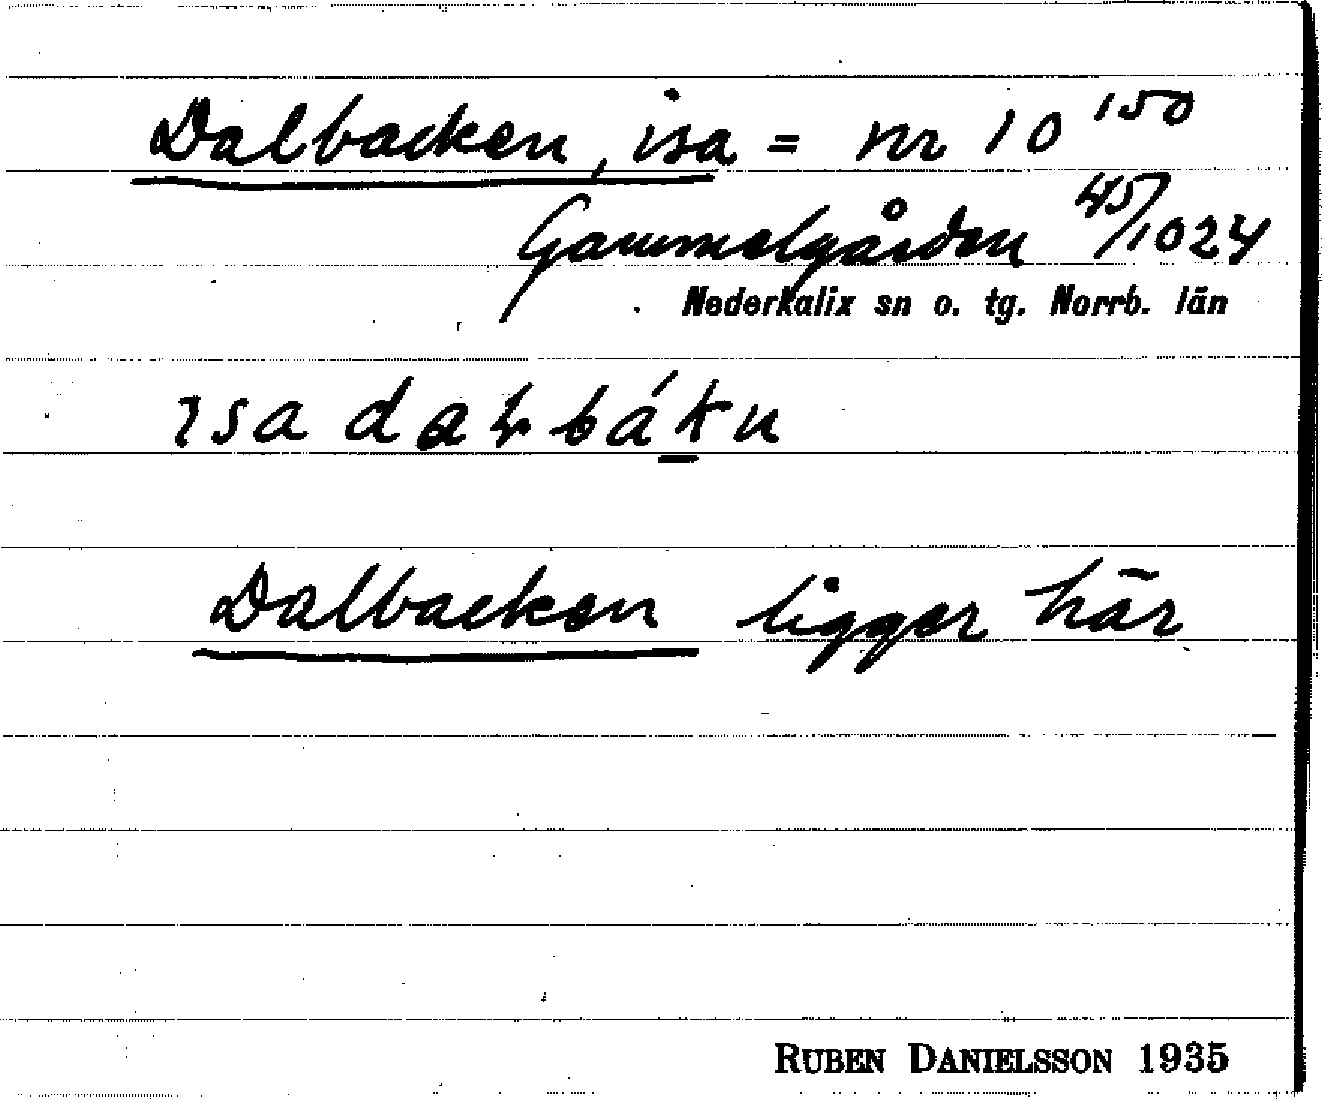 Dalbacken, isa = nr 10 150
Gammelgården 45/1024
Nederkalix sn o. tg. Norrb. län
ɩsa daɫbáku
Dalbacken ligger här
RUBEN DANIELSSON 1935